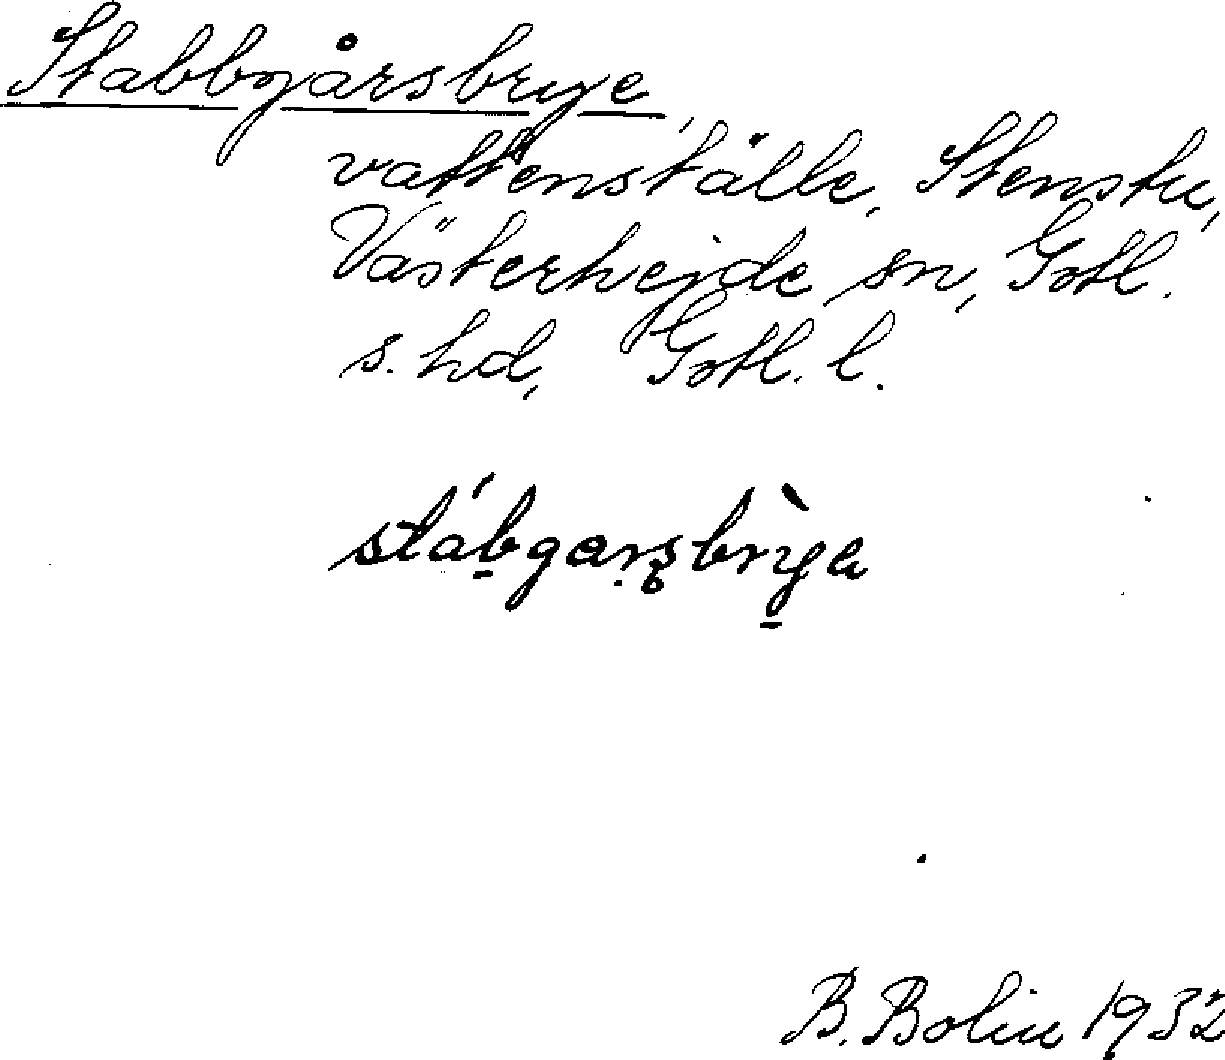 Stabbgårsbrye,
vattenställe, Stenstu,
Västerhejde sn, Gotl.
s. hd, Gotl. l.
stábgarsbrỳe
B. Bolin 1932